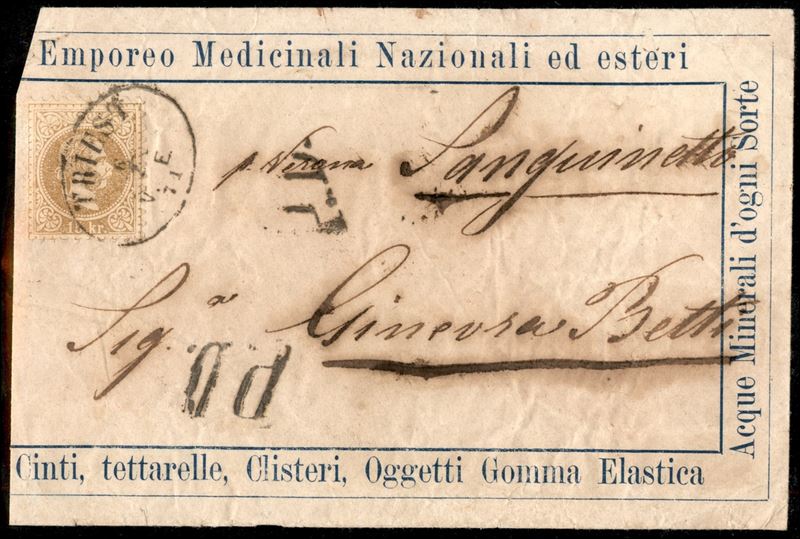 Emporeo Medicinali Nazionali ed esteri
TRIEST
V E
71
15 kr.
p. Verona Sanguinetto
Sig.ª Ginevra Betti
P.D.
Acque Minerali d'ogni Sorte
Cinti, tettarelle, Clisteri, Oggetti Gomma Elastica